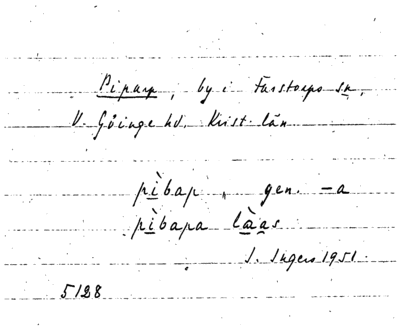 Piparp, by i Farstorps sn,
V. Göinge hd. Krist. län
pìbap, gen. -a
pìbapa làas
I. Ingers 1951.
5128